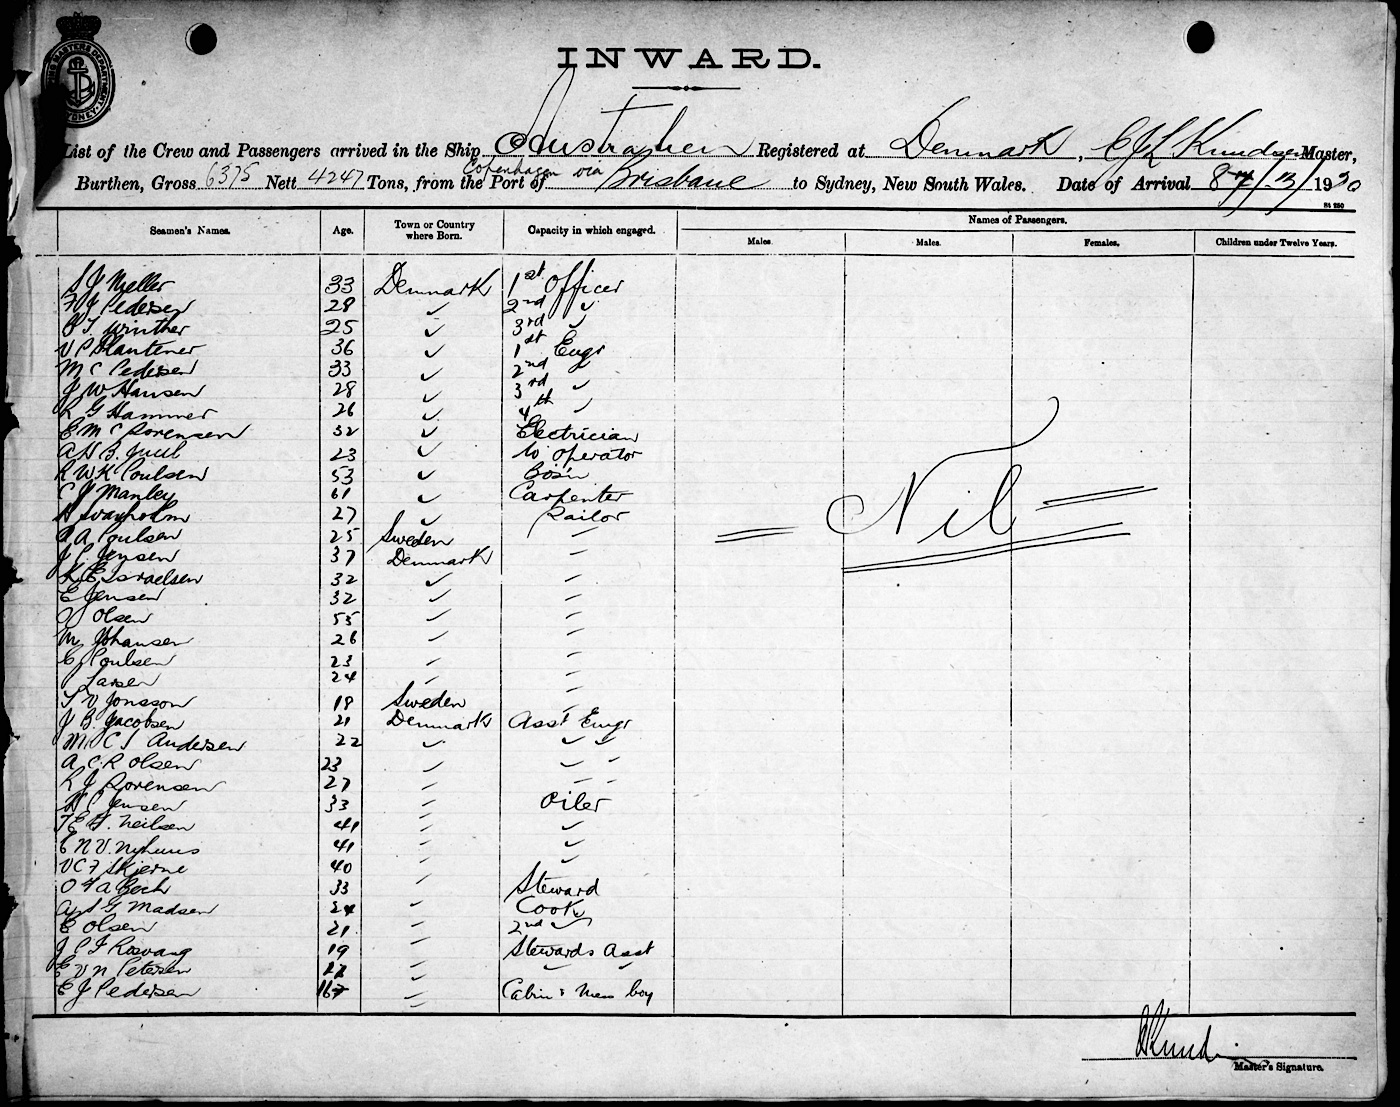 INWARD.
List of the Crew and Passengers arrived in the Ship Australien Registered at Denmark, C J L Knudsen Master,
Copenhagen via
Burthen, Gross 6375 Nett 4247 Tons, from the Port of Brisbane to Sydney, New South Wales. Date of Arrival 8th/ /1930
St 250
Seamen's Names. Age. Town or Country where Born. Capacity in which engaged. Names of Passengers.
Males. Males. Females. Children under Twelve Years.
S J Møller 33 Denmark 1st Officer
F V J Pedersen 28 " 2nd "
B T Winther 25 " 3rd "
V P Plantener 36 " 1st Engr
M C Pedersen 33 " 2nd "
J W Hansen 28 " 3rd "
K G Hammer 26 " 4th "
E M C Sorensen 32 " Electrician
A H B. Juul 23 " W Operator
R W K Poulsen 53 " Bosn
C J Manley 61 " Carpenter
H Svanholm 27 " Sailor
A A Poulsen 25 Sweden "
J P. Jensen 37 Denmark "
K E Israelsen 32 " "
E Jensen 32 " "
J Olsen 55 " "
M Johansen 26 " "
C Poulsen 23 " "
P Larsen 24 " "
T V Jonsson 18 Sweden "
J B. Jacobsen 21 Denmark Asst Engr
M. C S Andersen 22 " " "
A C. R Olsen 23 " " "
K J Sorensen 27 " " "
H C Jensen 33 " Oiler
T E F. Neilsen 41 " "
E N V. Nyhuus 41 " "
V C F Skjerne 40 " "
O F A Bech 33 " Steward
G Madsen 24 " Cook
E Olsen 21 " 2nd "
J P F Rosvang 19 " Stewards Asst
E V N Petersen " " "
E J Pedersen 16 " Cabin & Mess boy
= Nil =
Knudsen
Master's Signature.